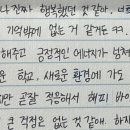 나 진짜 행복했던 것 같아. 너희
기억밖에 없는 거 같거든
해주고 긍정적인 에너지가 넘쳐
운 학교, 새로운 환경에 가도
지만 곧잘 적응해서 해피 바이
은 걱정은 없는 것 같애. 하지